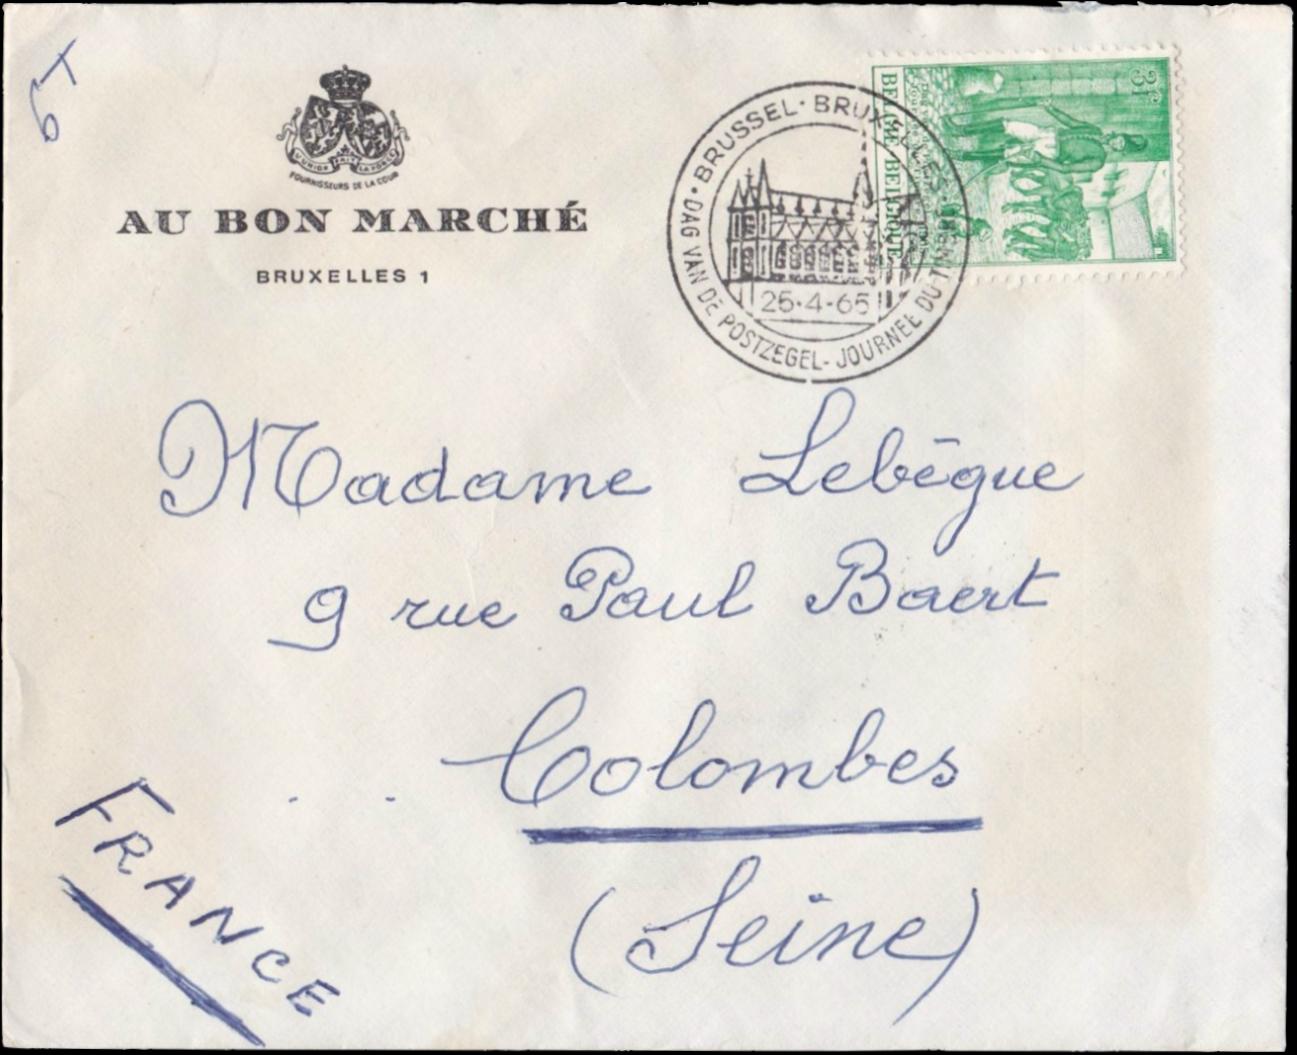 6T
L'UNION FAIT LA FORCE
FOURNISSEURS DE LA COUR
AU BON MARCHÉ
BRUXELLES 1
BRUSSEL · BRUXELLES
25·4-65
DAG VAN DE POSTZEGEL - JOURNEE DU TIMBRE
3F
BELGIE-BELGIQUE
Madame Lebègue
9 rue Paul Baert
Colombes
(Seine)
FRANCE